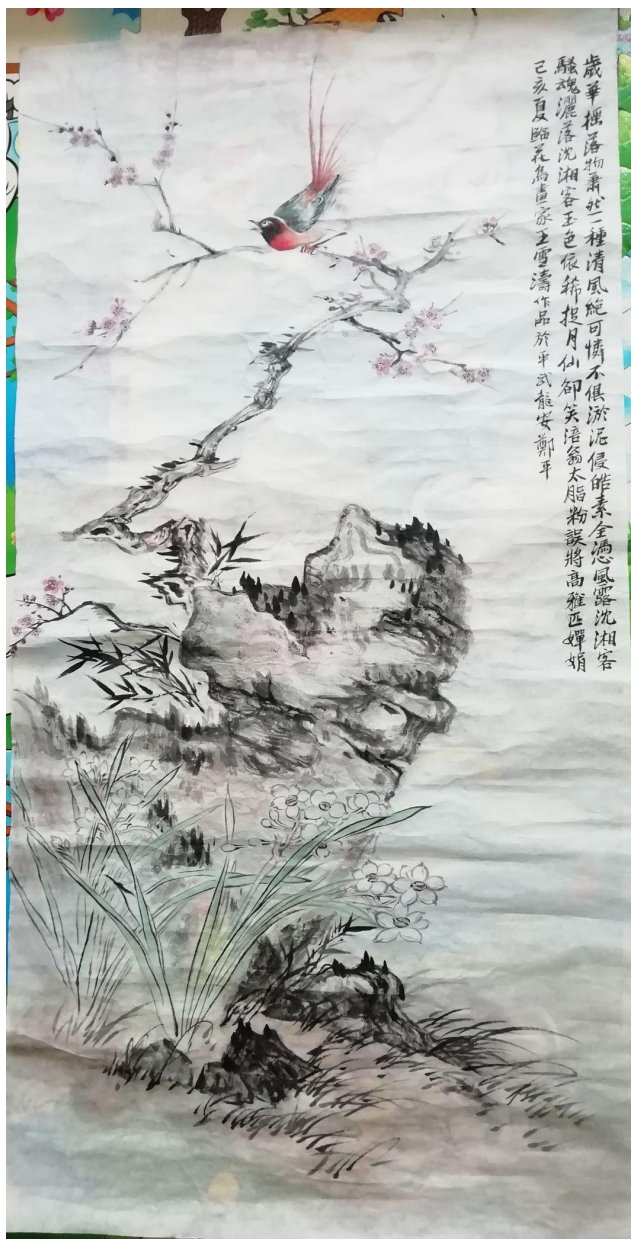 歲華搖落物蕭然一種清風絶可憐不俱淤泥侵皓素全憑風露沈湘客
騷魂灑落沈湘客玉色依稀捉月仙卻笑涪翁太脂粉誤將高雅匹嬋娟
己亥夏臨花鳥畫家王雪濤作品於平武龍安鄭平